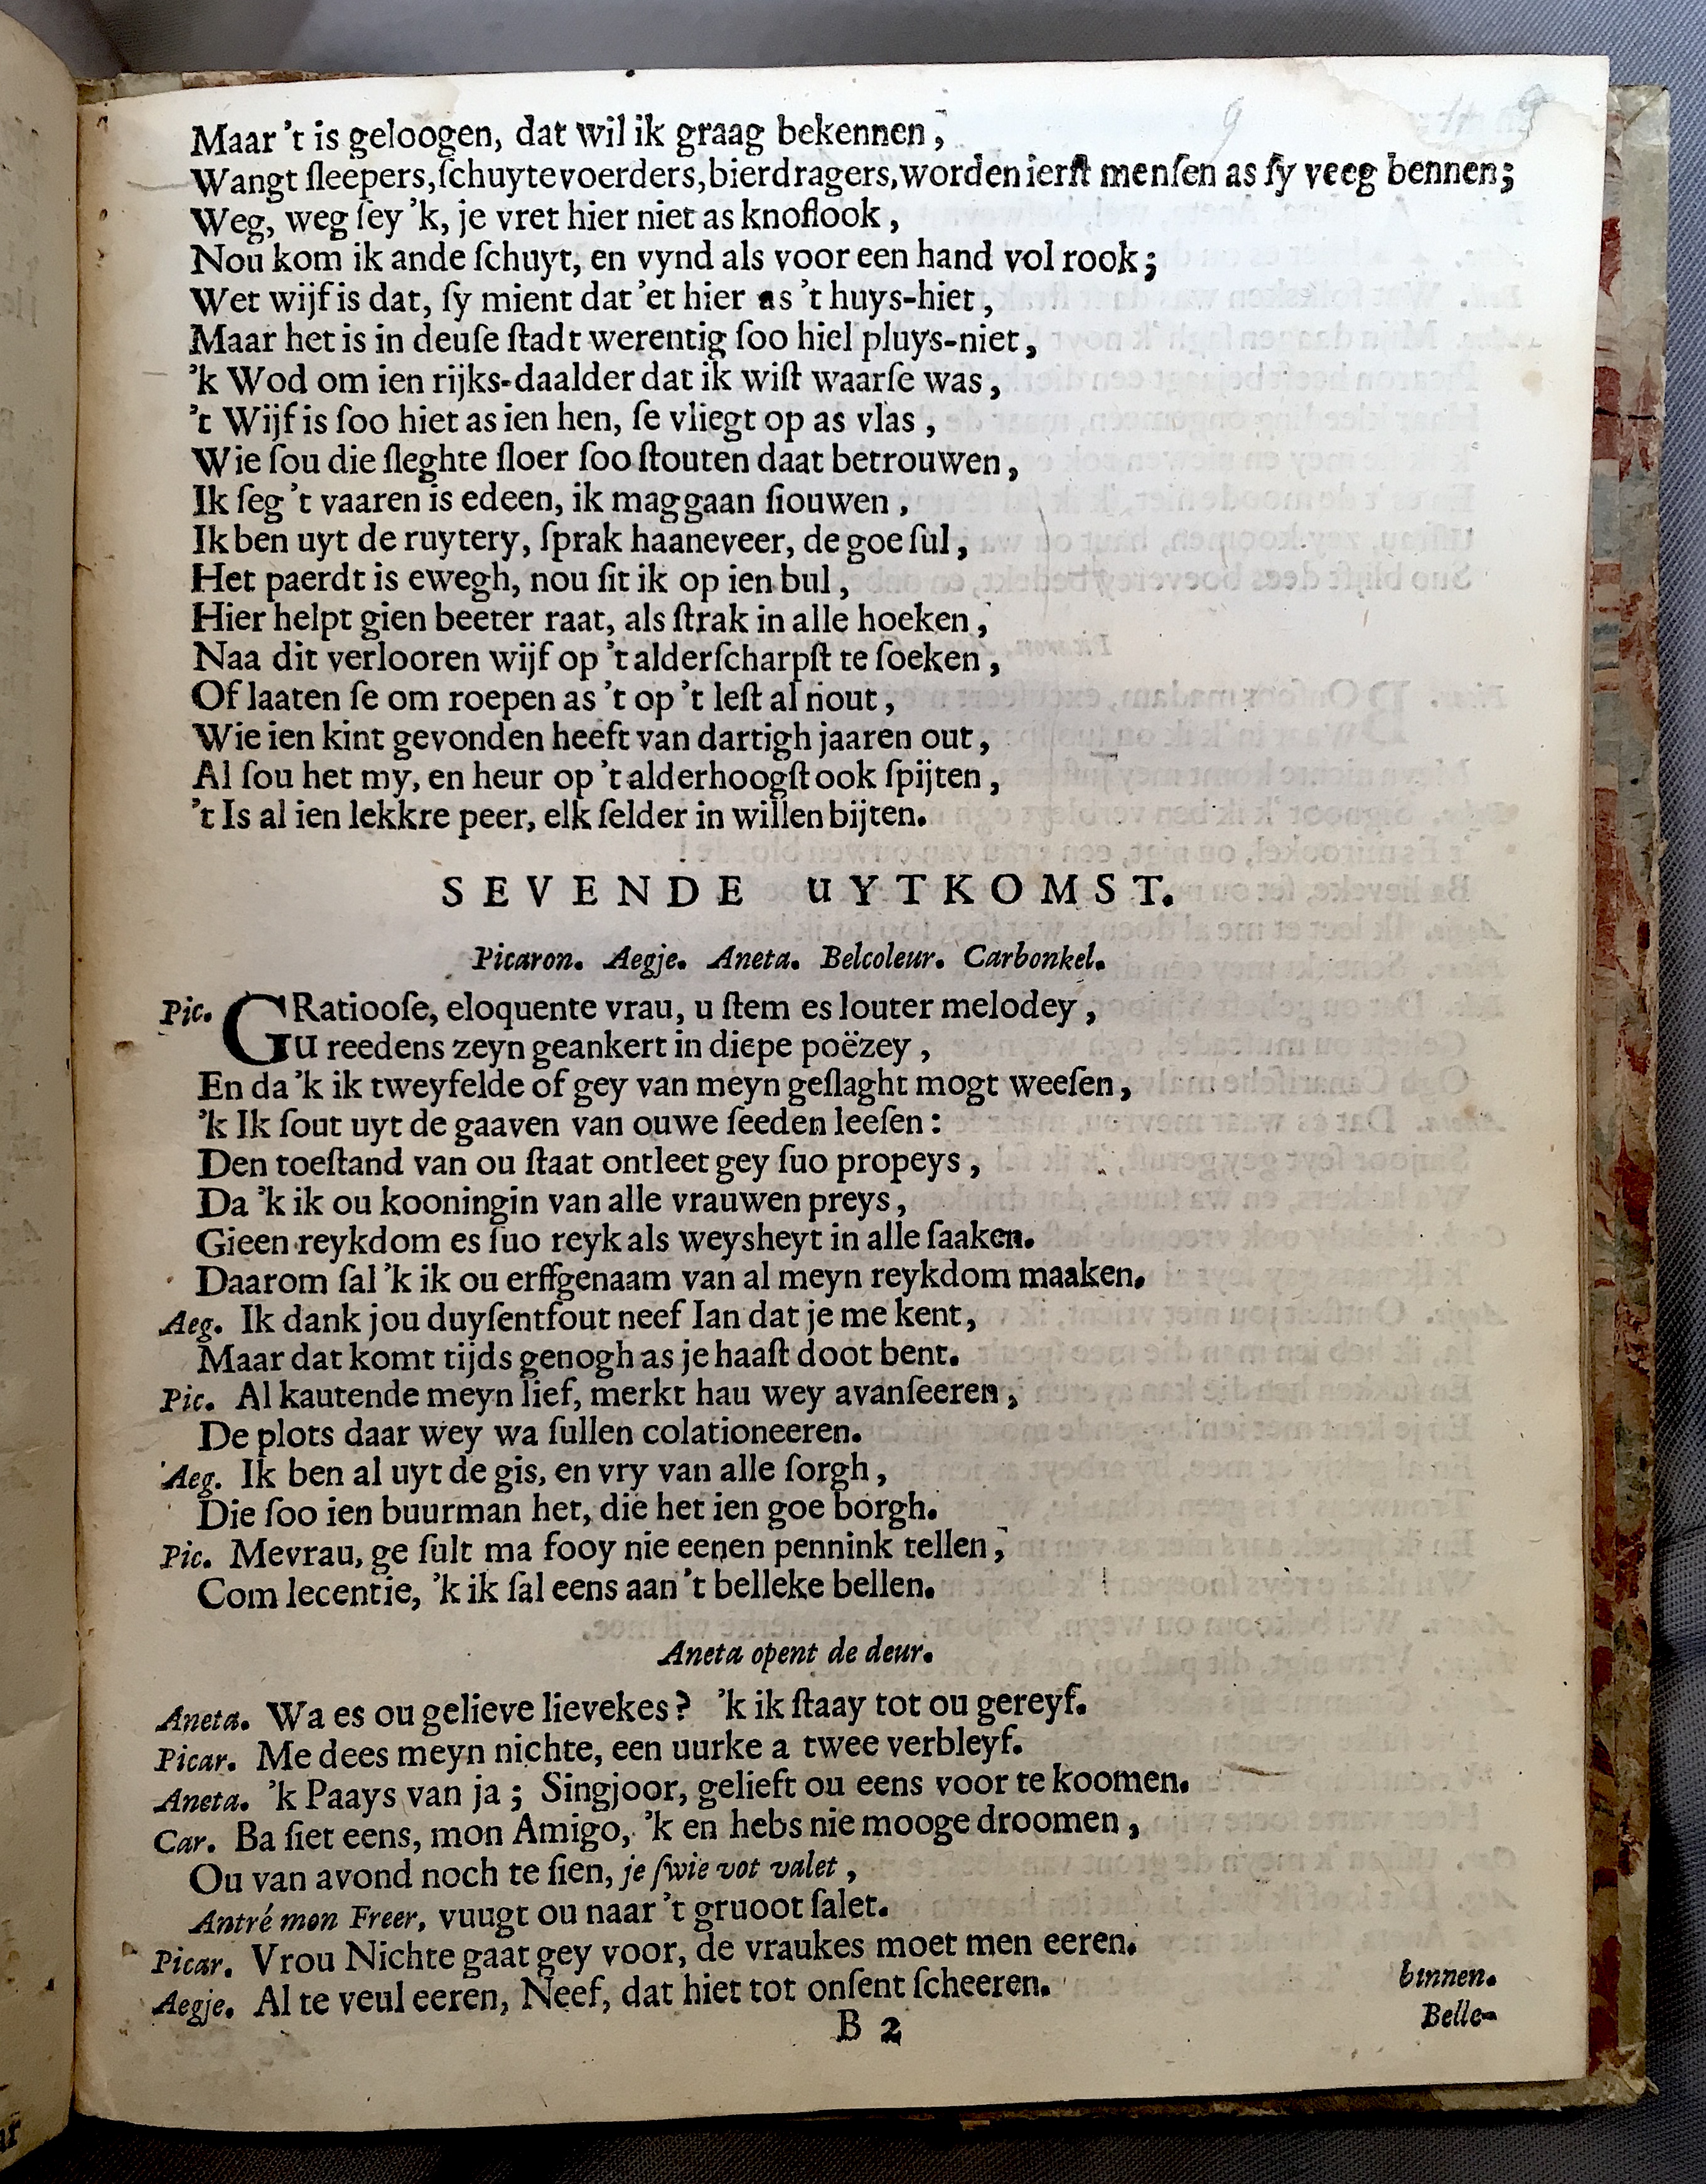 9 9
Maar 't is geloogen, dat wil ik graag bekennen,
Wangt ſleepers, ſchuytevoerders, bierdragers, worden ierſt menſen as ſy veeg bennen;
Weg, weg ſey 'k, je vret hier niet as knoflook,
Nou kom ik ande ſchuyt, en vynd als voor een hand vol rook;
Wet wijf is dat, ſy mient dat 'et hier as 't huys-hiet,
Maar het is in deuſe ſtadt werentig ſoo hiel pluys-niet,
'k Wod om ien rijks-daalder dat ik wiſt waarſe was,
't Wijf is ſoo hiet as ien hen, ſe vliegt op as vlas,
Wie ſou die ſleghte ſloer ſoo ſtouten daat betrouwen,
Ik ſeg 't vaaren is edeen, ik mag gaan ſiouwen,
Ik ben uyt de ruytery, ſprak haaneveer, de goe ſul,
Het paerdt is ewegh, nou ſit ik op ien bul,
Hier helpt gien beeter raat, als ſtrak in alle hoeken,
Naa dit verlooren wijf op 't alderſcharpſt te ſoeken,
Of laaten ſe om roepen as 't op 't leſt al nout,
Wie ien kint gevonden heeft van dartigh jaaren out,
Al ſou het my, en heur op 't alderhoogſt ook ſpijten,
't Is al ien lekkre peer, elk ſelder in willen bijten.
SEVENDE UYTKOMST.
Picaron. Aegje. Aneta. Belcoleur. Carbonkel.
Pic. GRatiooſe, eloquente vrau, u ſtem es louter melodey,
U reedens zeyn geankert in diepe poëzey,
En da 'k ik tweyfelde of gey van meyn geſlaght mogt weeſen,
'k Ik ſout uyt de gaaven van ouwe ſeeden leeſen:
Den toeſtand van ou ſtaat ontleet gey ſuo propeys,
Da 'k ik ou kooningin van alle vrauwen preys,
Gieen reykdom es ſuo reyk als weysheyt in alle ſaaken.
Daarom ſal 'k ik ou erffgenaam van al meyn reykdom maaken.
Aeg. Ik dank jou duyſentfout neef Ian dat je me kent,
Maar dat komt tijds genogh as je haaſt doot bent.
Pic. Al kautende meyn lief, merkt hau wey avanſeeren,
De plots daar wey wa ſullen colationeeren.
Aeg. Ik ben al uyt de gis, en vry van alle ſorgh,
Die ſoo ien buurman het, die het ien goe borgh.
Pic. Mevrau, ge ſult ma fooy nie eenen pennink tellen,
Com lecentie, 'k ik ſal eens aan 't belleke bellen.
Aneta opent de deur.
Aneta. Wa es ou gelieve lievekes? 'k ik ſtaay tot ou gereyf.
Picar. Me dees meyn nichte, een uurke a twee verbleyf.
Aneta. 'k Paays van ja; Singjoor, gelieft ou eens voor te koomen.
Car. Ba ſiet eens, mon Amigo, 'k en hebs nie mooge droomen,
Ou van avond noch te ſien, je ſwie vot valet,
Antré mon Freer, vuugt ou naar 't gruoot ſalet.
Picar. Vrou Nichte gaat gey voor, de vraukes moet men eeren.
Aegje. Al te veul eeren, Neef, dat hiet tot onſent ſcheeren. binnen.
B 2 Belle-